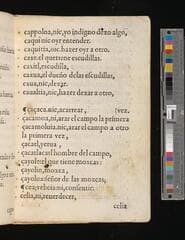 cappolna, nic, yo indigno de zo algo,
caqui nic oyr entender.
caquitia, nic. hazer oyr a otro.
caxe. el que tiene escudillas.
caxtl, escudilla,
caxua, el dueño de las escudillas,
caua, nic, dexar.
caualtia, nic, hazer dexar a otro,
çaçaca. nic, acarrear,
[vez.
çacamoa, ni, arar el campo la primera
çacamolhuia. nic, arar el campo a otro
la primera vez,
çacatl, yerua,
çacatla, el hombre del campo,
çayole, el que tiene moscas:
çayolin, moxca,
çayolua, señor de las moscas,
cea, vel, ceia, ni, consentir:
celia. ni, reuerdecer,
celia